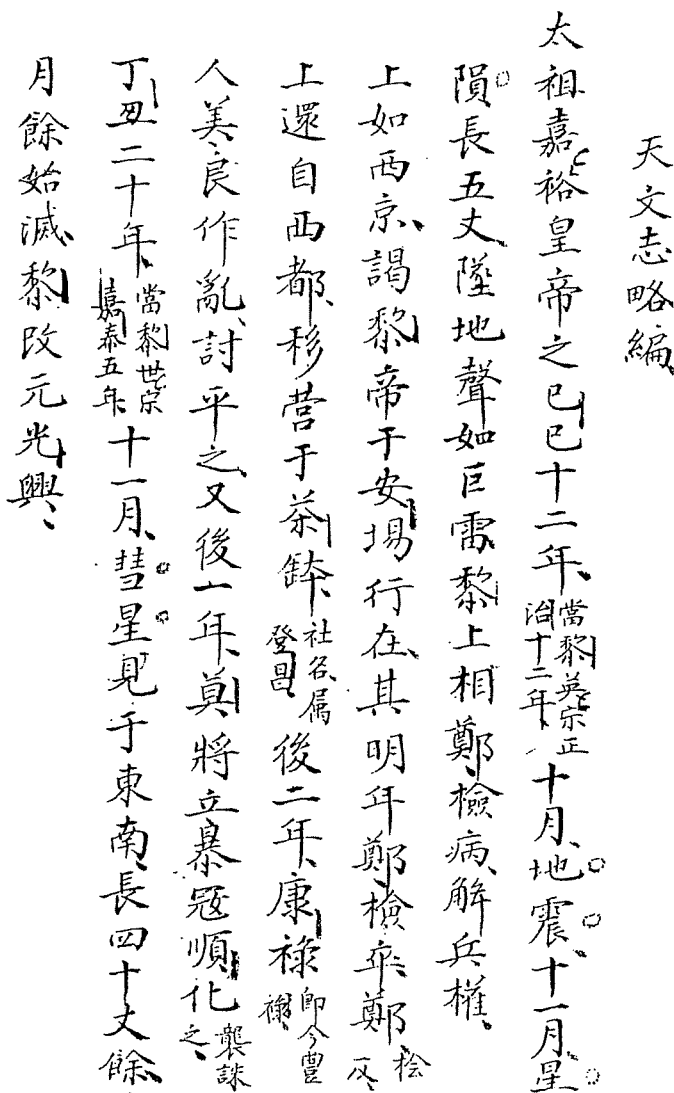 天文志略編
太祖嘉裕皇帝之己巳十二年當黎英宗正治十二年十月地震十一月星
隕長五丈墜地聲如巨雷黎上相鄭檢病解兵權
上如西京謁黎帝于安場行在其明年鄭檢卒鄭桧反
上還自西都移營于茶缽社名属登昌後二年康祿即今豊禄
人美良作亂討平之又後一年莫將立暴寇順化襲誅之
丁丑二十年當黎世宗嘉泰五年十一月彗星見于東南長四十丈餘
月餘始滅黎改元光興